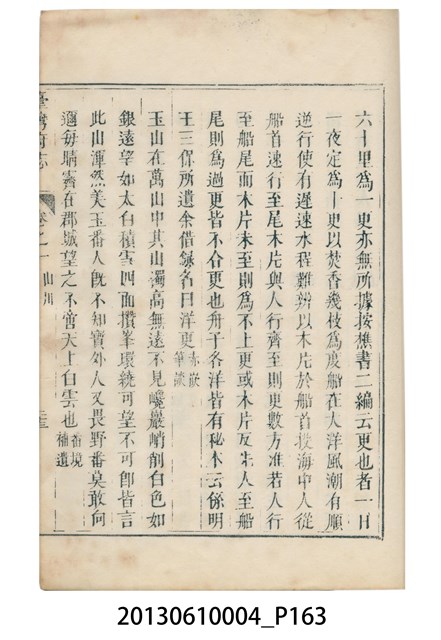 六十里為一更亦無所據按樵書二編云更也者一日
一夜定為十更以焚香幾枝為度船在大洋風潮有順
逆行使有遲速水程難辨以木片於船首投海中人從
船首速行至尾木片與人行齊至則更數方准若人行
至船尾而木片未至則為不上更或木片反先人至船
尾則為過更皆不合更也舟子各洋皆有秘本云係明
王三保所遺余借錄名曰洋更
赤嵌
筆談
玉山在萬山中其山獨高無遠不見巉巖峭削白色如
銀遠望如太白積雪四面攢峯環繞可望不可即皆言
此山渾然美玉番人既不知寶外人又畏野番莫敢向
邇每晴霽在郡城望之不啻天上白雲也
番境
補遺
臺灣府志
卷之一
山川
20130610004_P163